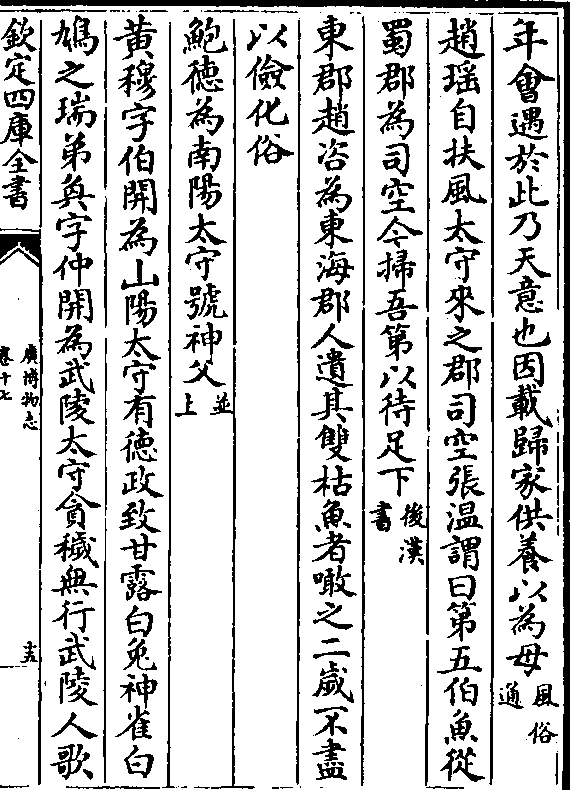 年會遇於此乃天意也因載歸家供養以為母風俗通
趙瑶自扶風太守來之郡司空張温謂曰第五伯魚從
蜀郡為司空今掃吾第以待足下後漢書
東郡趙咨為東海郡人遺其雙枯魚者噉之二歲不盡
以儉化俗
鮑德為南陽太守號神父並上
黃穆字伯開為山陽太守有德政致甘露白兔神雀白
鳩之瑞弟奐字仲開為武陵太守貪穢無行武陵人歌
欽定四庫全書
廣博物志
卷十七
十五